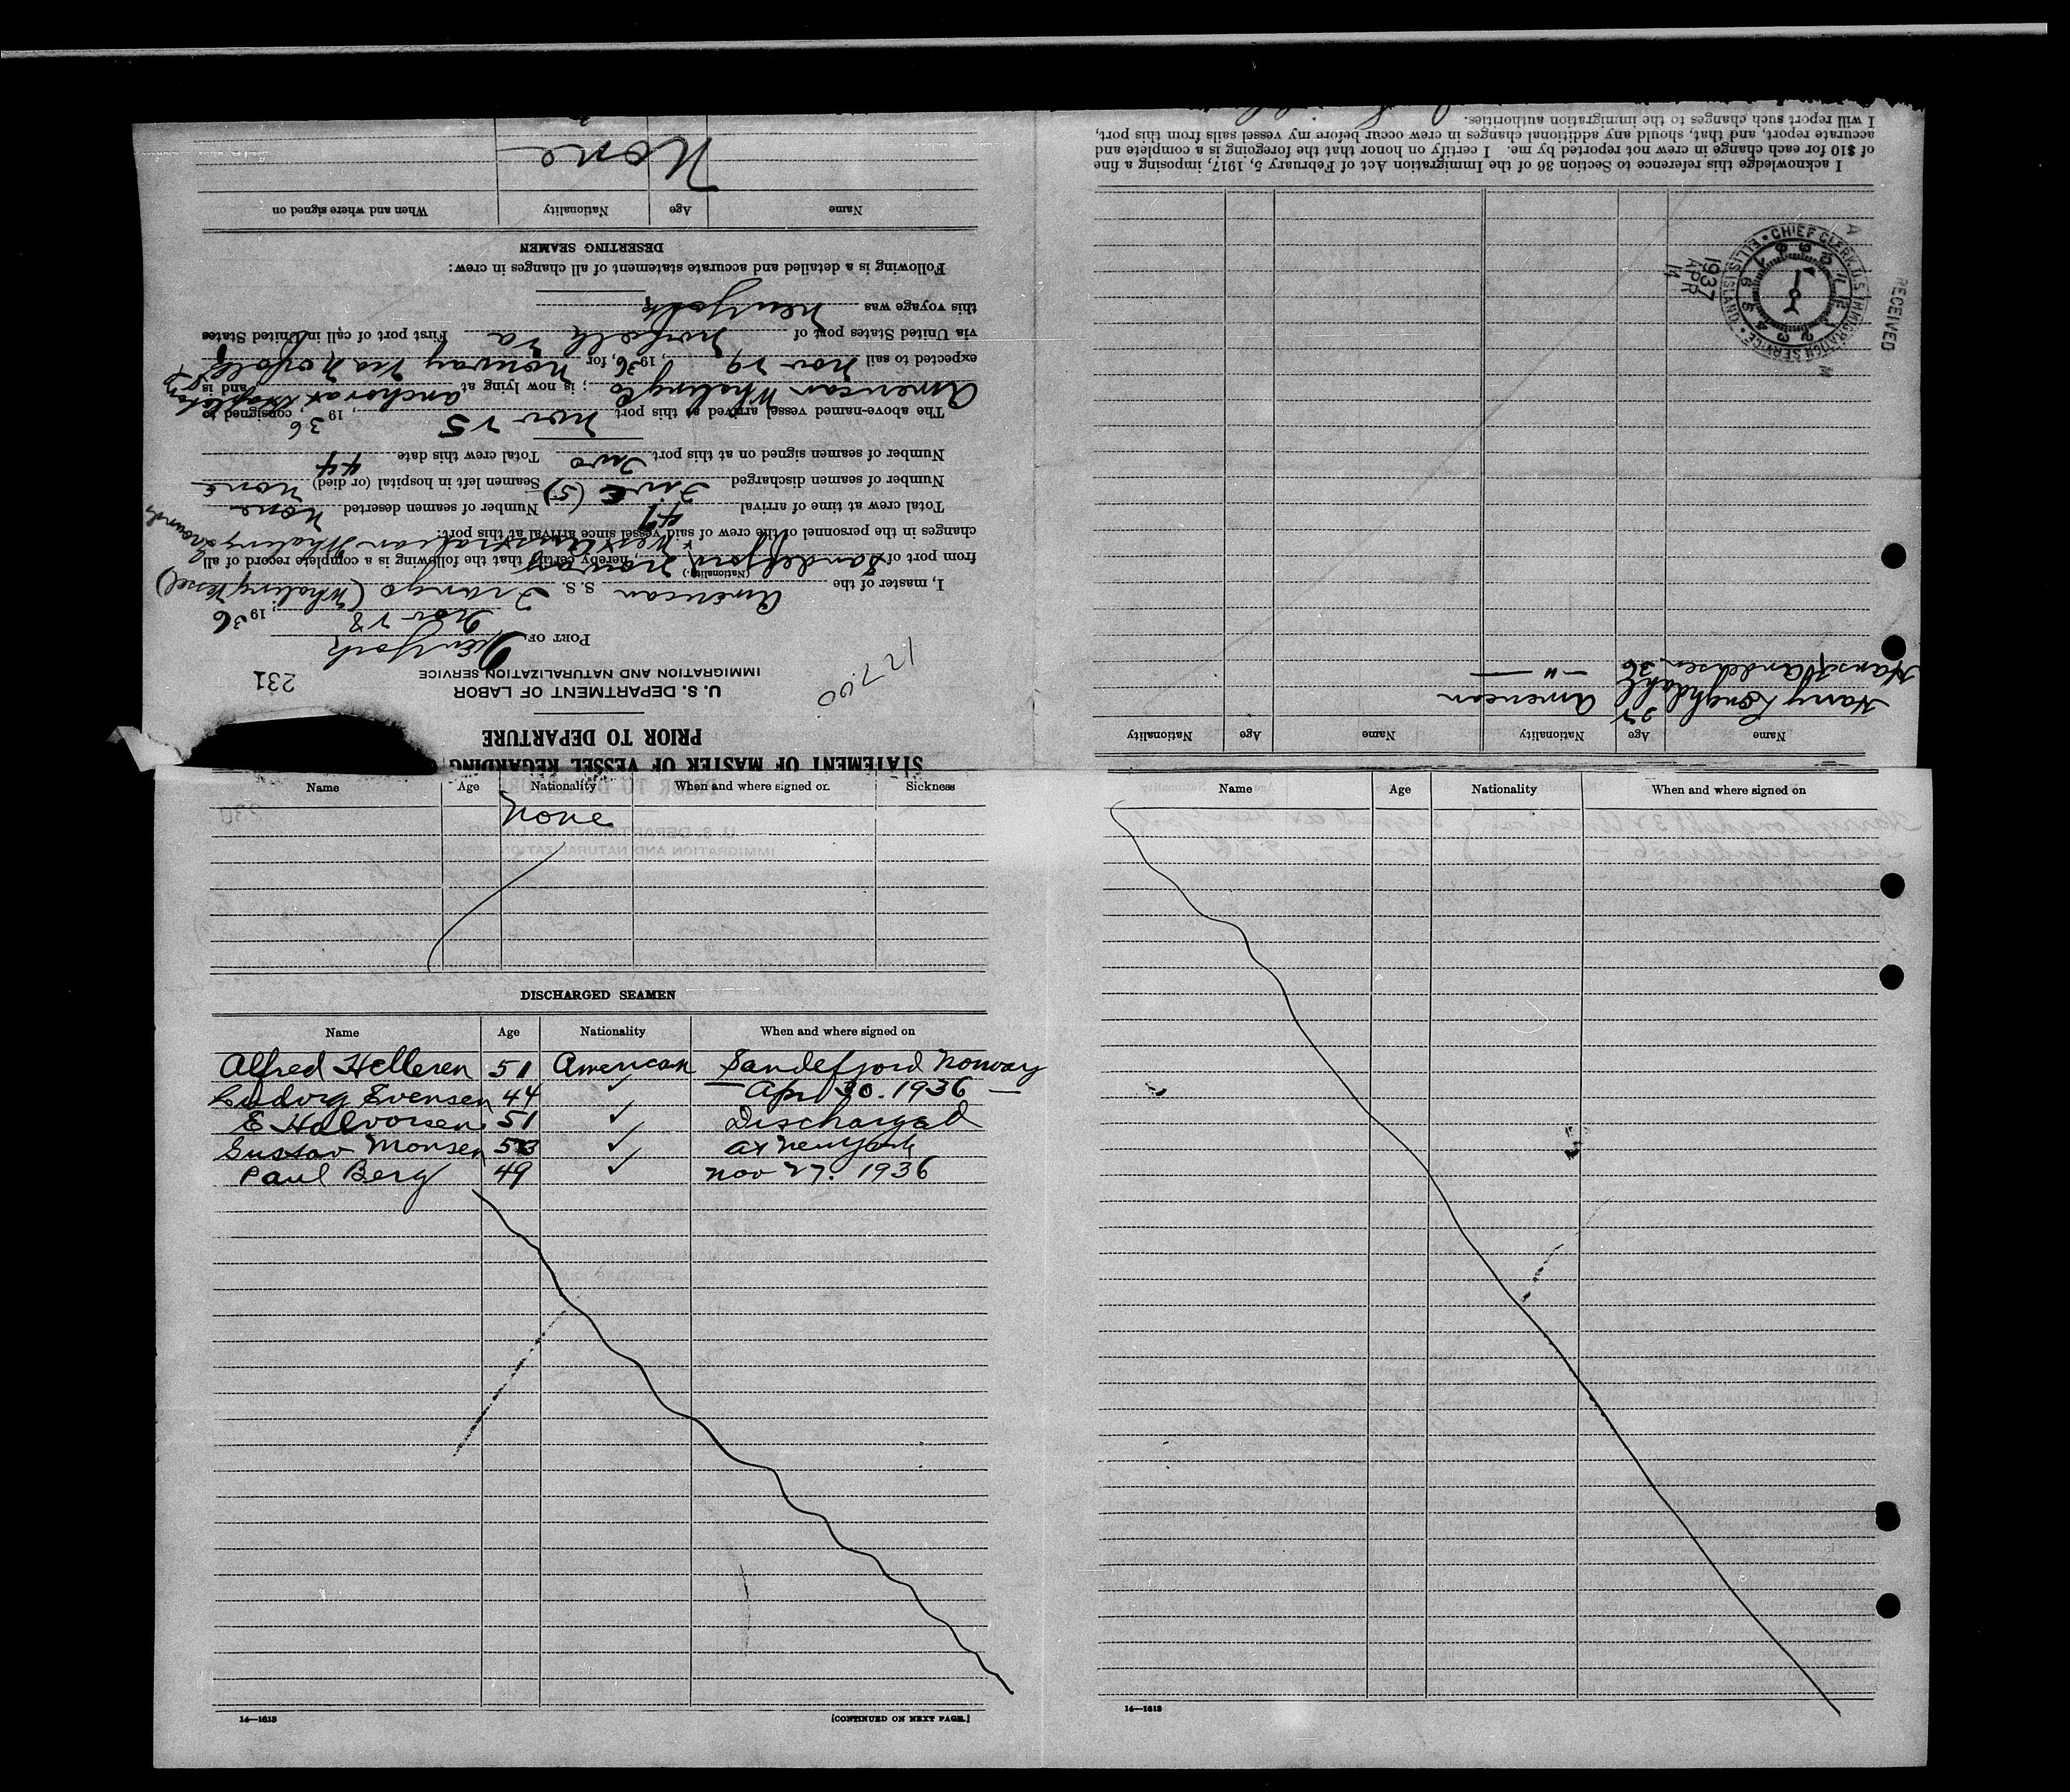 STATEMENT OF MASTER OF VESSEL REGARDING
PRIOR TO DEPARTURE
U. S. DEPARTMENT OF LABOR
IMMIGRATION AND NATURALIZATION SERVICE
231
12700
PORT OF New York
Nov 28, 1936
I, master of the American S. S. Frango (Whaling Vessel)
(Nationality)
from port of Sandefjord Norway, hereby certify that the following is a complete record of all
West Australian Whaling Grounds
changes in the personnel of the crew of said vessel since arrival at this port:
Total crew at time of arrival 47 Number of seamen deserted None
Number of seamen discharged Five (5) Seamen left in hospital (or died) None
Number of seamen signed on at this port Two Total crew this date 44
The above-named vessel arrived at this port Nov 25, 1936, consigned to
American Whaling Co; is now lying at anchor at Stapleton and is
expected to sail Nov 29, 1936, for Norway via Norfolk
via United States port of Norfolk Va First port of call in United States
this voyage was New York
Following is a detailed and accurate statement of all changes in crew:
DESERTING SEAMEN
Name Age Nationality When and where signed on
None
Name Age Nationality Name Age Nationality
Harry Longhdahl 27 American
Hans Andersen 36 — " —
RECEIVED
CHIEF CLERK, U.S. IMMIGRATION SERVICE • ELLIS ISLAND •
1937
APR
14
I acknowledge this reference to Section 36 of the Immigration Act of February 5, 1917, imposing a fine
of $10 for each change in crew not reported by me. I certify on honor that the foregoing is a complete and
accurate report, and that, should any additional changes in crew occur before my vessel sails from this port,
I will report such changes to the immigration authorities.
Name Age Nationality When and where signed or. Sickness
None
DISCHARGED SEAMEN
Name Age Nationality When and where signed on
Alfred Helleren 51 American Sandefjord Norway
Ludvig Evensen 44 ✓ — Apr 30. 1936 —
E Halvorsen 51 ✓ Discharged
Gustav Monsen 53 ✓ at New York
Paul Berg 49 ✓ Nov 27. 1936
14—1613
[CONTINUED ON NEXT PAGE.]
Name Age Nationality When and where signed on
14—1613